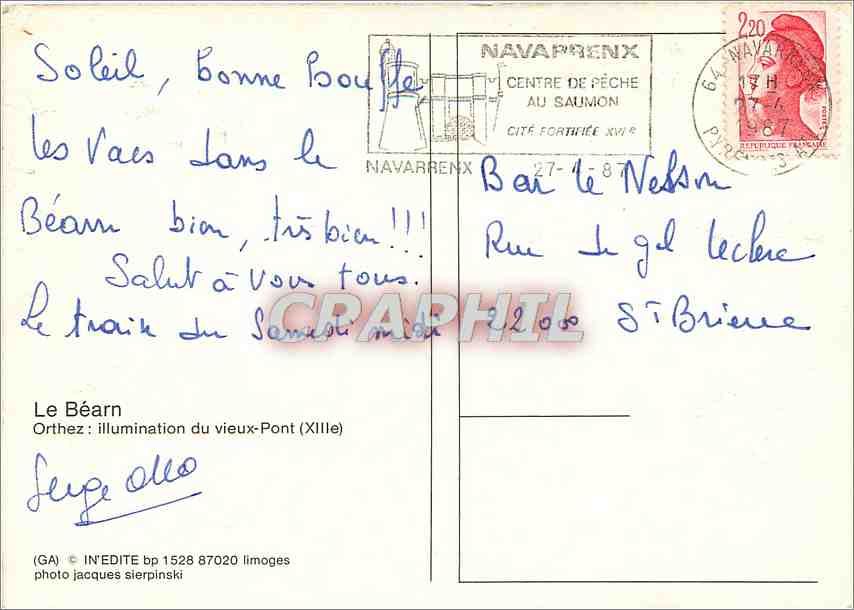 Soleil, bonne bouffe
les Vacs dans le
Béarn bien, très bien!!!
Salut à vous tous.
Le train du Samedi midi
Le Béarn
Orthez : illumination du vieux-Pont (XIIIe)
Serge
(GA) © IN'EDITE bp 1528 87020 limoges
photo jacques sierpinski
NAVARRENX
CENTRE DE PÊCHE
AU SAUMON
CITÉ FORTIFIÉE XVIe
NAVARRENX 27-4-87
2,20
REPUBLIQUE FRANÇAISE
64 NAVARRENX
17H
27-4
1987
Bar le Nelson
Rue du gal Leclerc
22000 St Brieuc
CRAPHIL